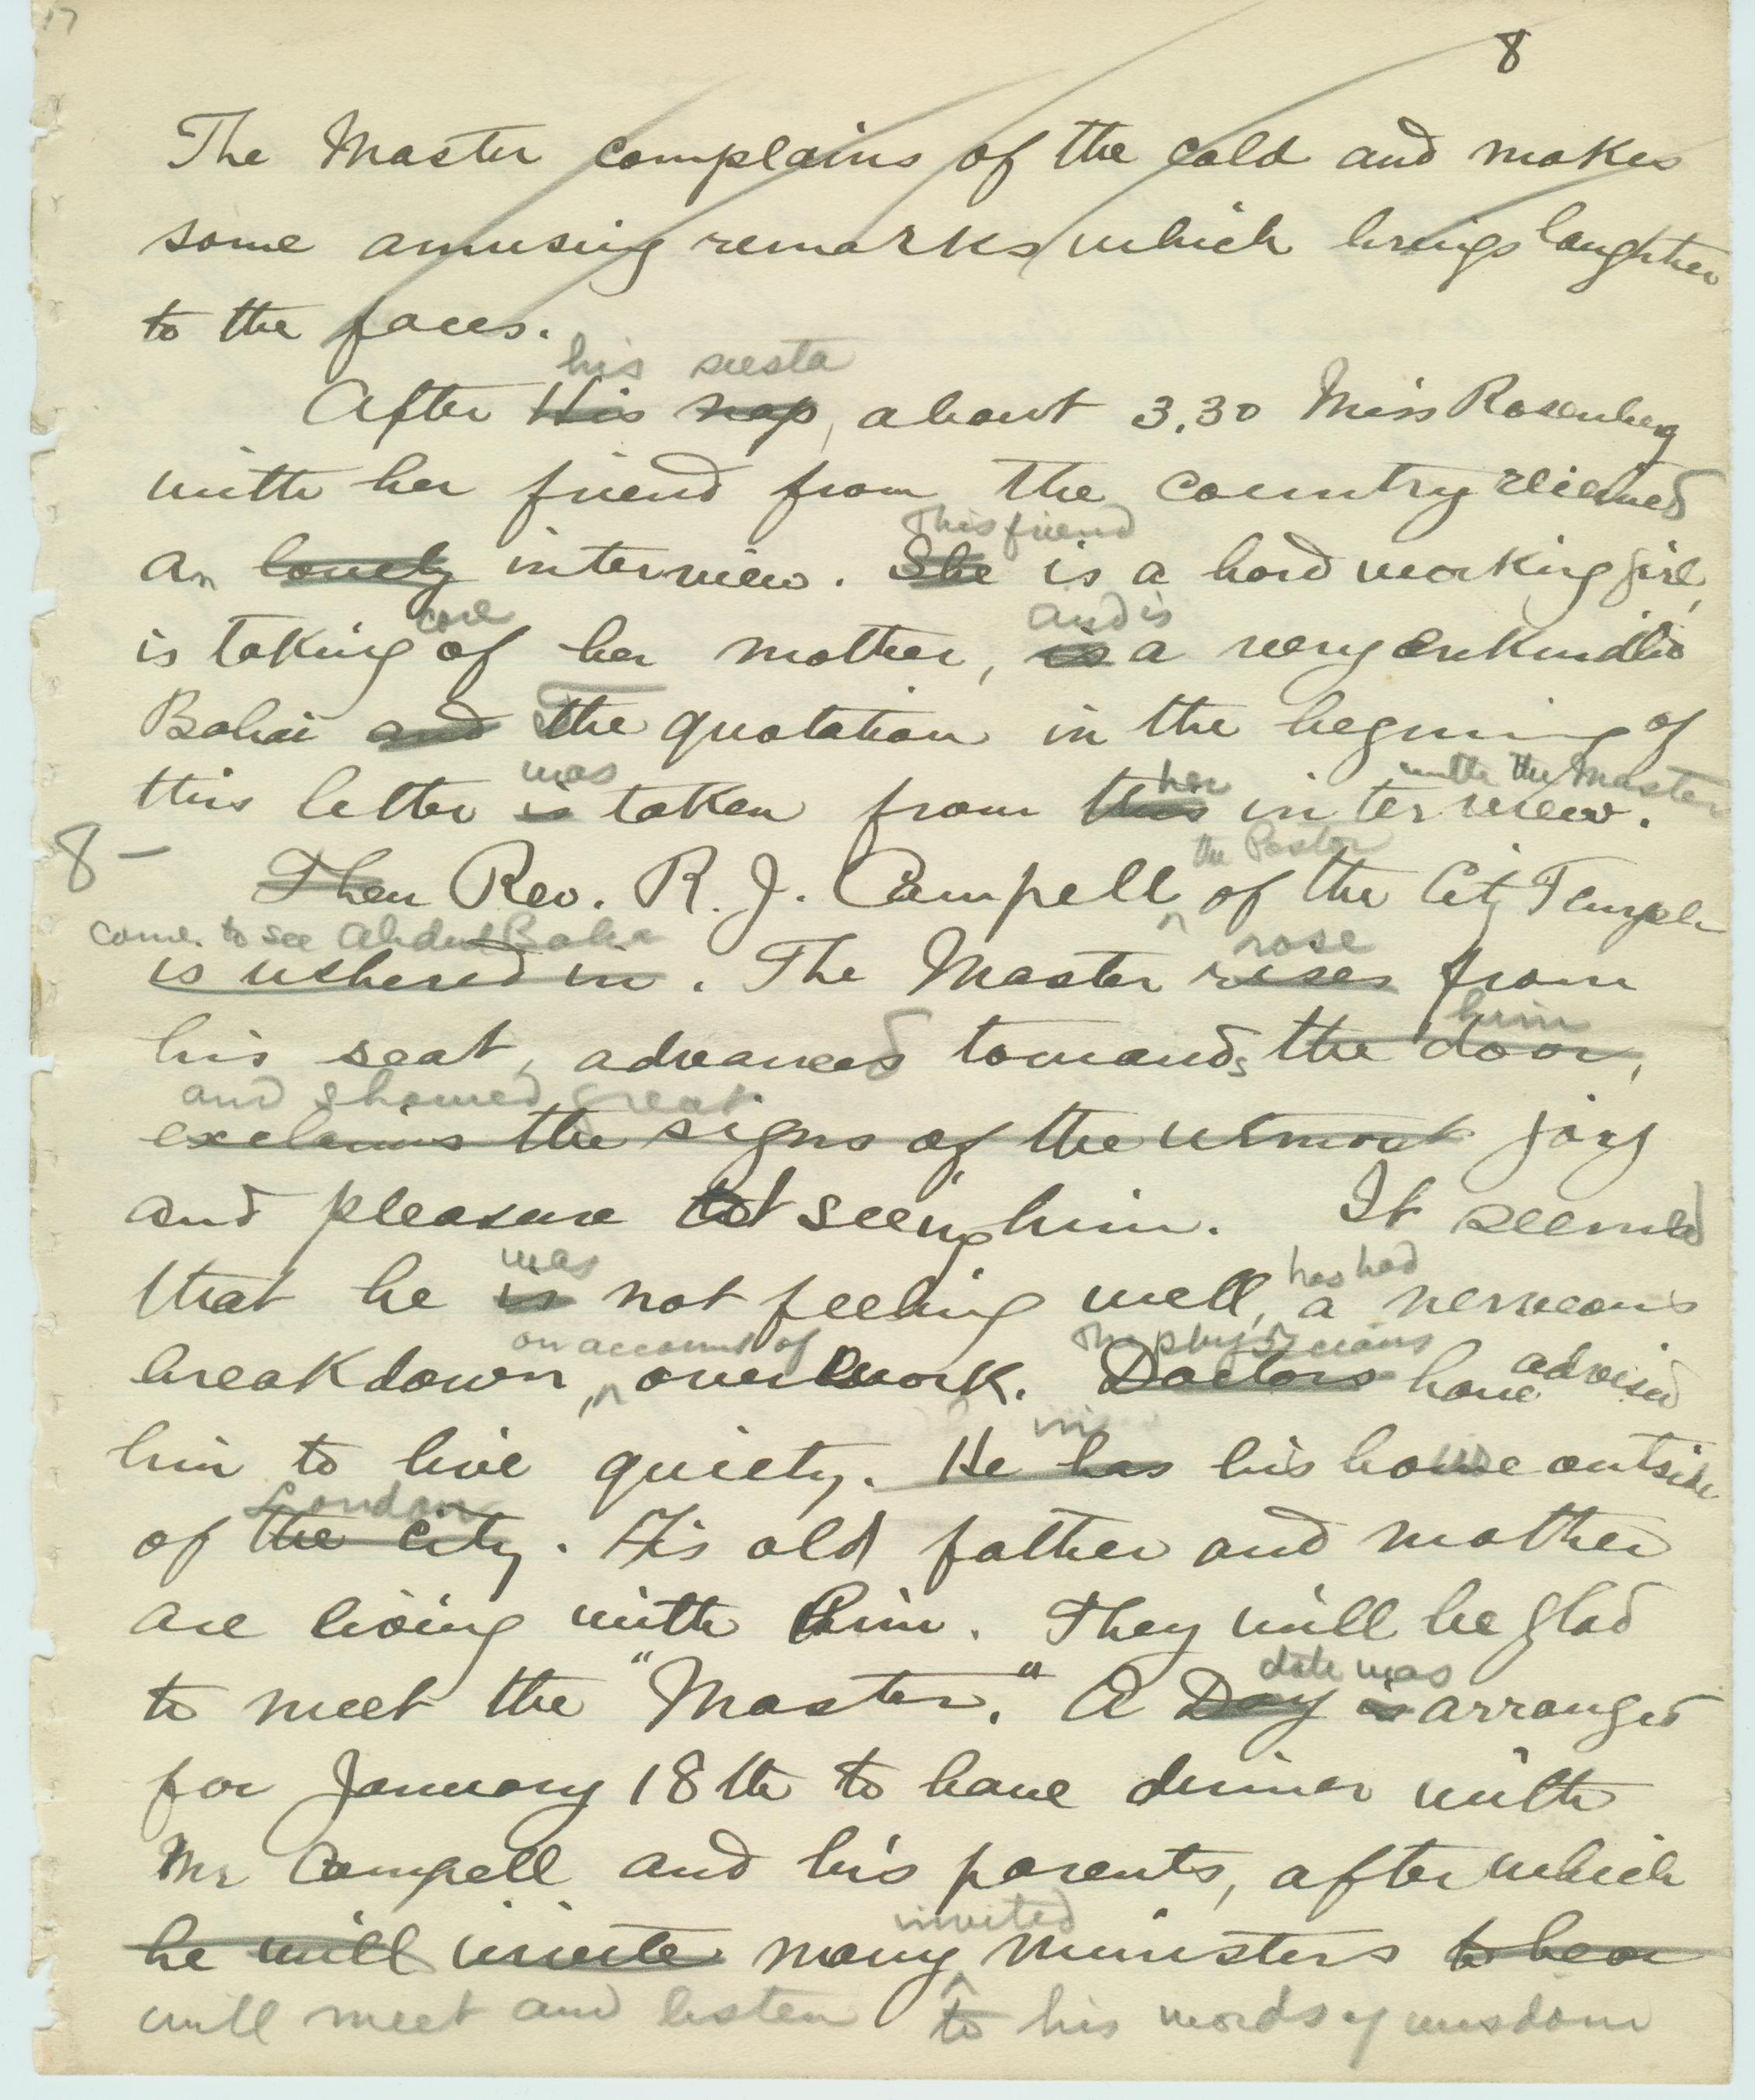 17
8
The Master complains of the cold and makes
some amusing remarks which brings laughter
to the faces.
his siesta
After His nap, about 3.30 Miss Rosenberg
with her friend from the country
This friend
an lovely interview. She is a hard working girl,
care and is
is taking of her mother, is a very enkindled
Bahai and The quotation in the begining of
was her with the Master
this letter is taken from this interview.
8 —
the Pastor
Then Rev. R. J. Campell of the City Temple
come to see Abdul Baha rose
is ushered in. The Master rises from
him
his seat, advanced towards the door,
and showed great
exclaims the signs of the utmost joy
and pleasure at seeing him. It seemed
was has had
that he is not feeling well, a nerveous
on account of The physicians
breakdown, overwork. Doctors have advised
in
him to live quiety. He has his house outside
London
of the city. His old father and mother
are living with him. They will be glad
date was
to meet the "Master." A Day is arranged
for January 18th to have dinner with
Mr Campell and his parents, after which
invited
he will invite many ministers to hear
will meet and listen to his words of wisdom